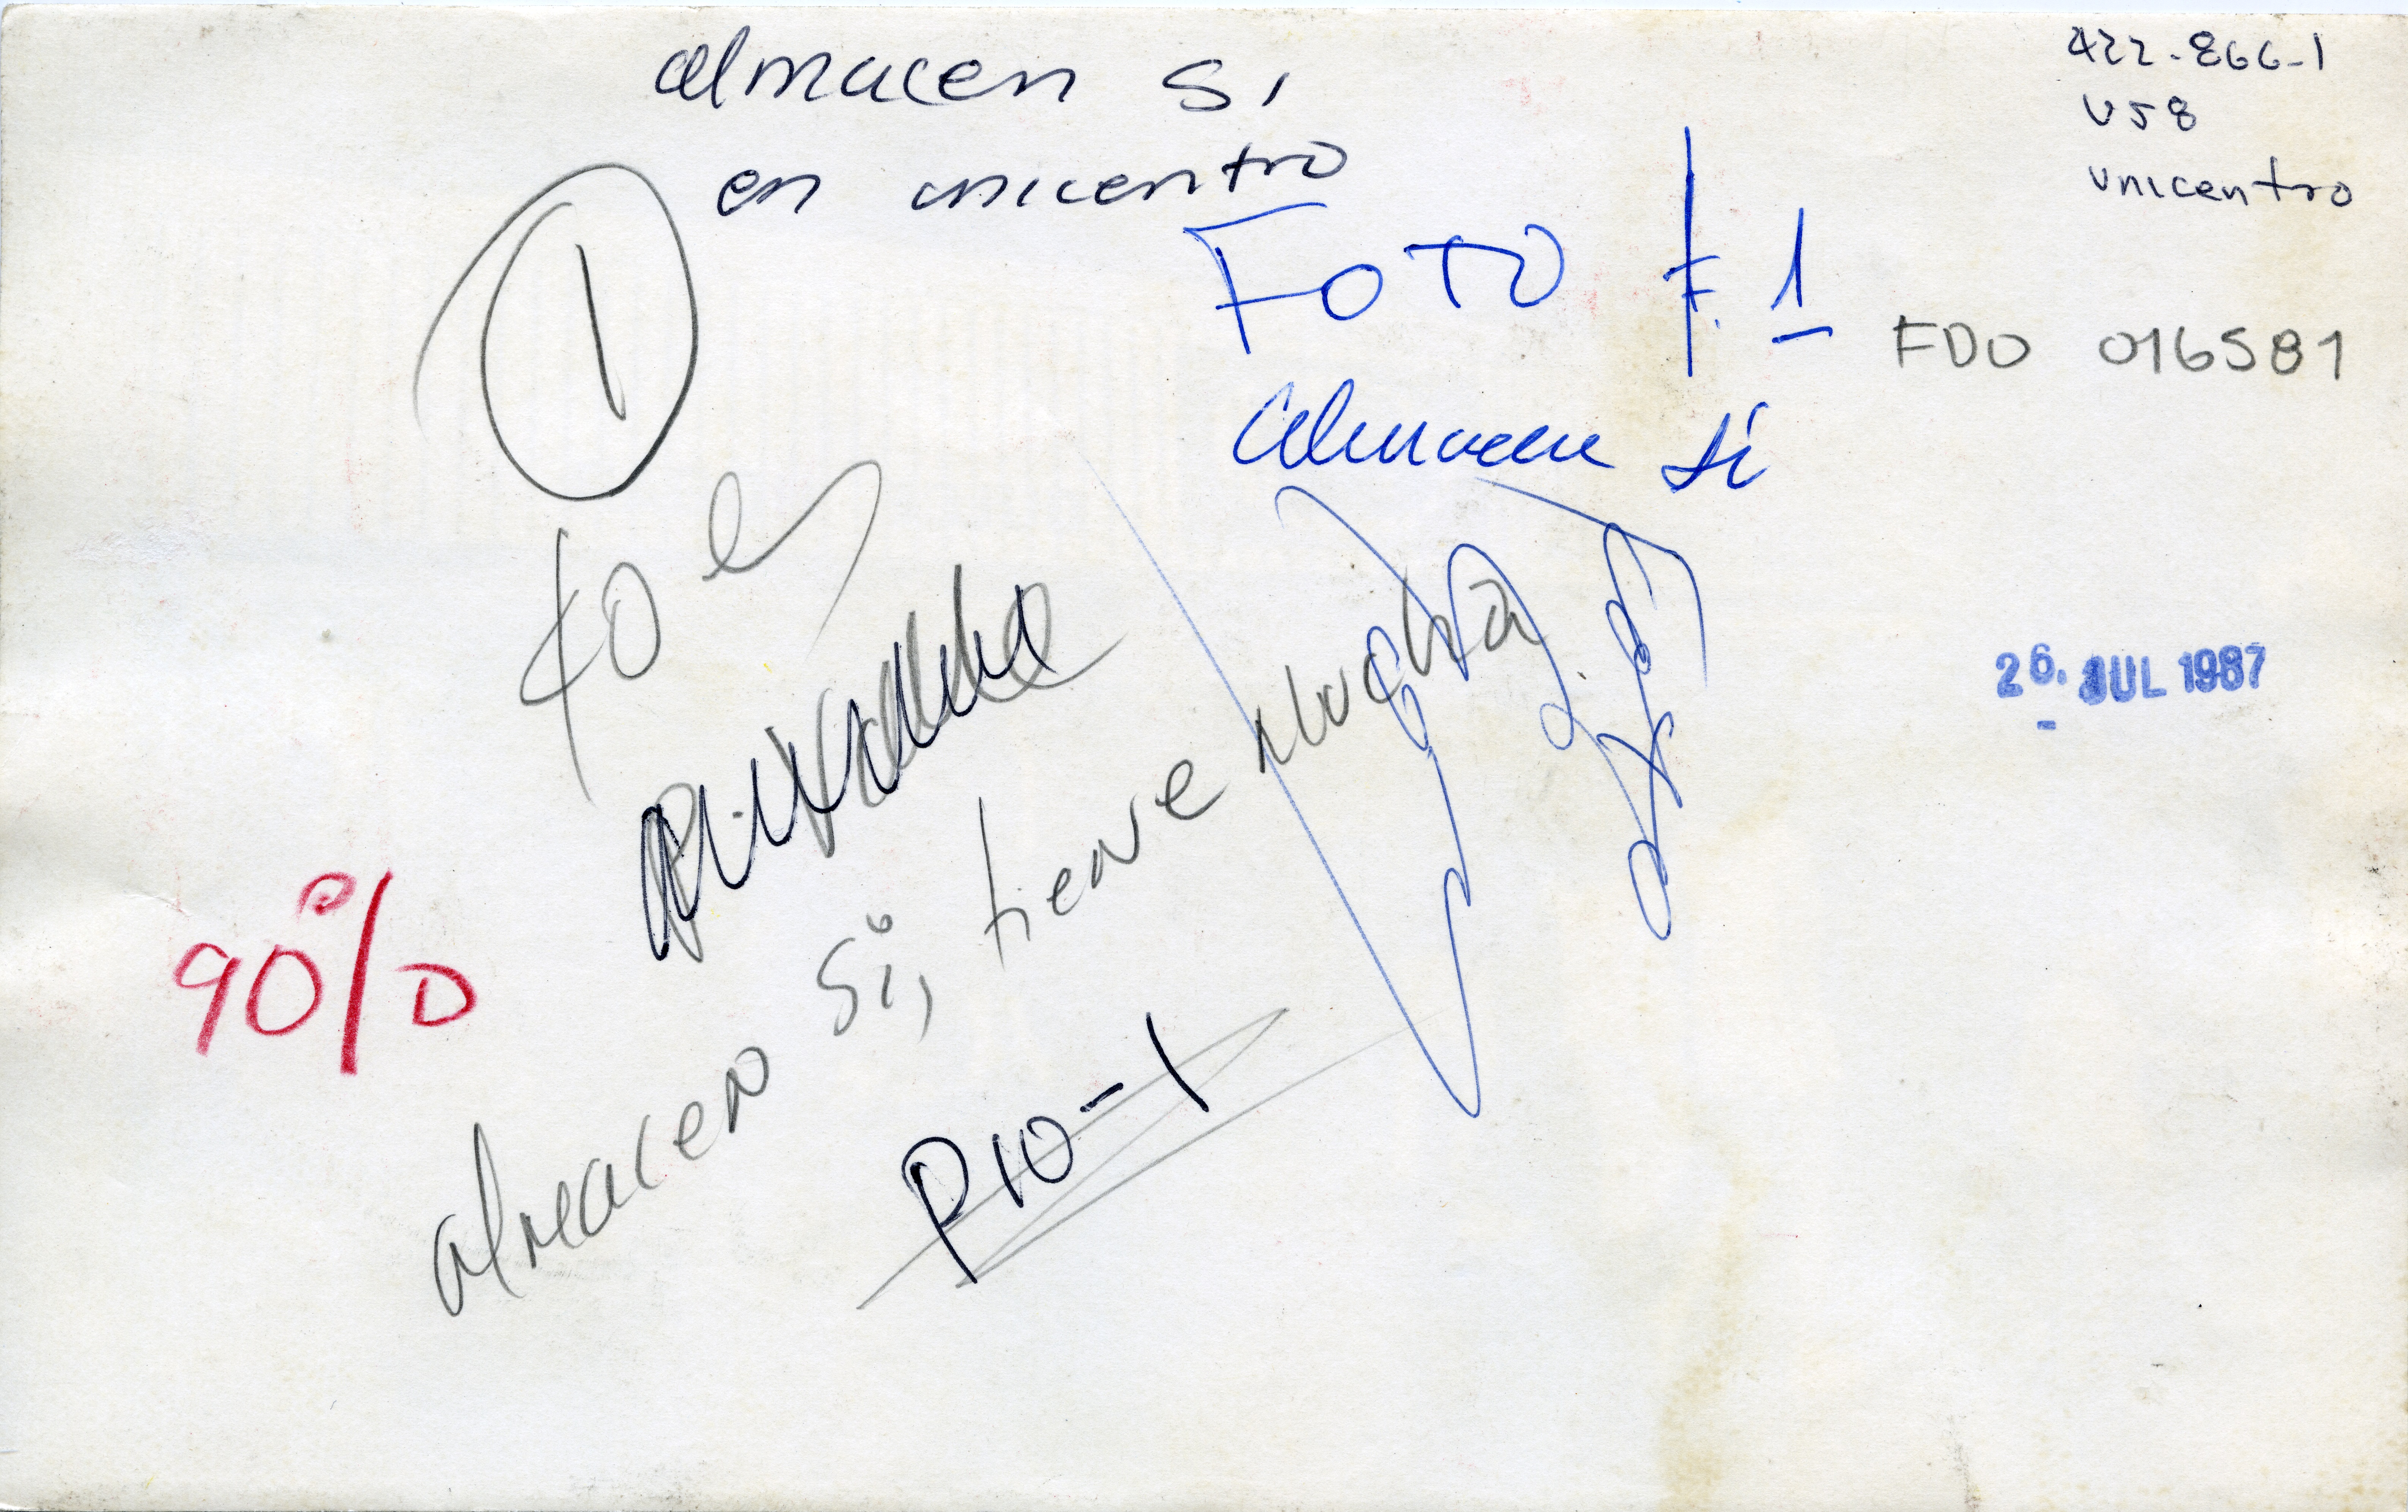 almacen si
en unicentro
422-866-1
U58
unicentro
1
FOTO F.1
almacen si
FDO 016581
40
26. JUL 1987
90%
almacen si, tiene mucha
P10-1